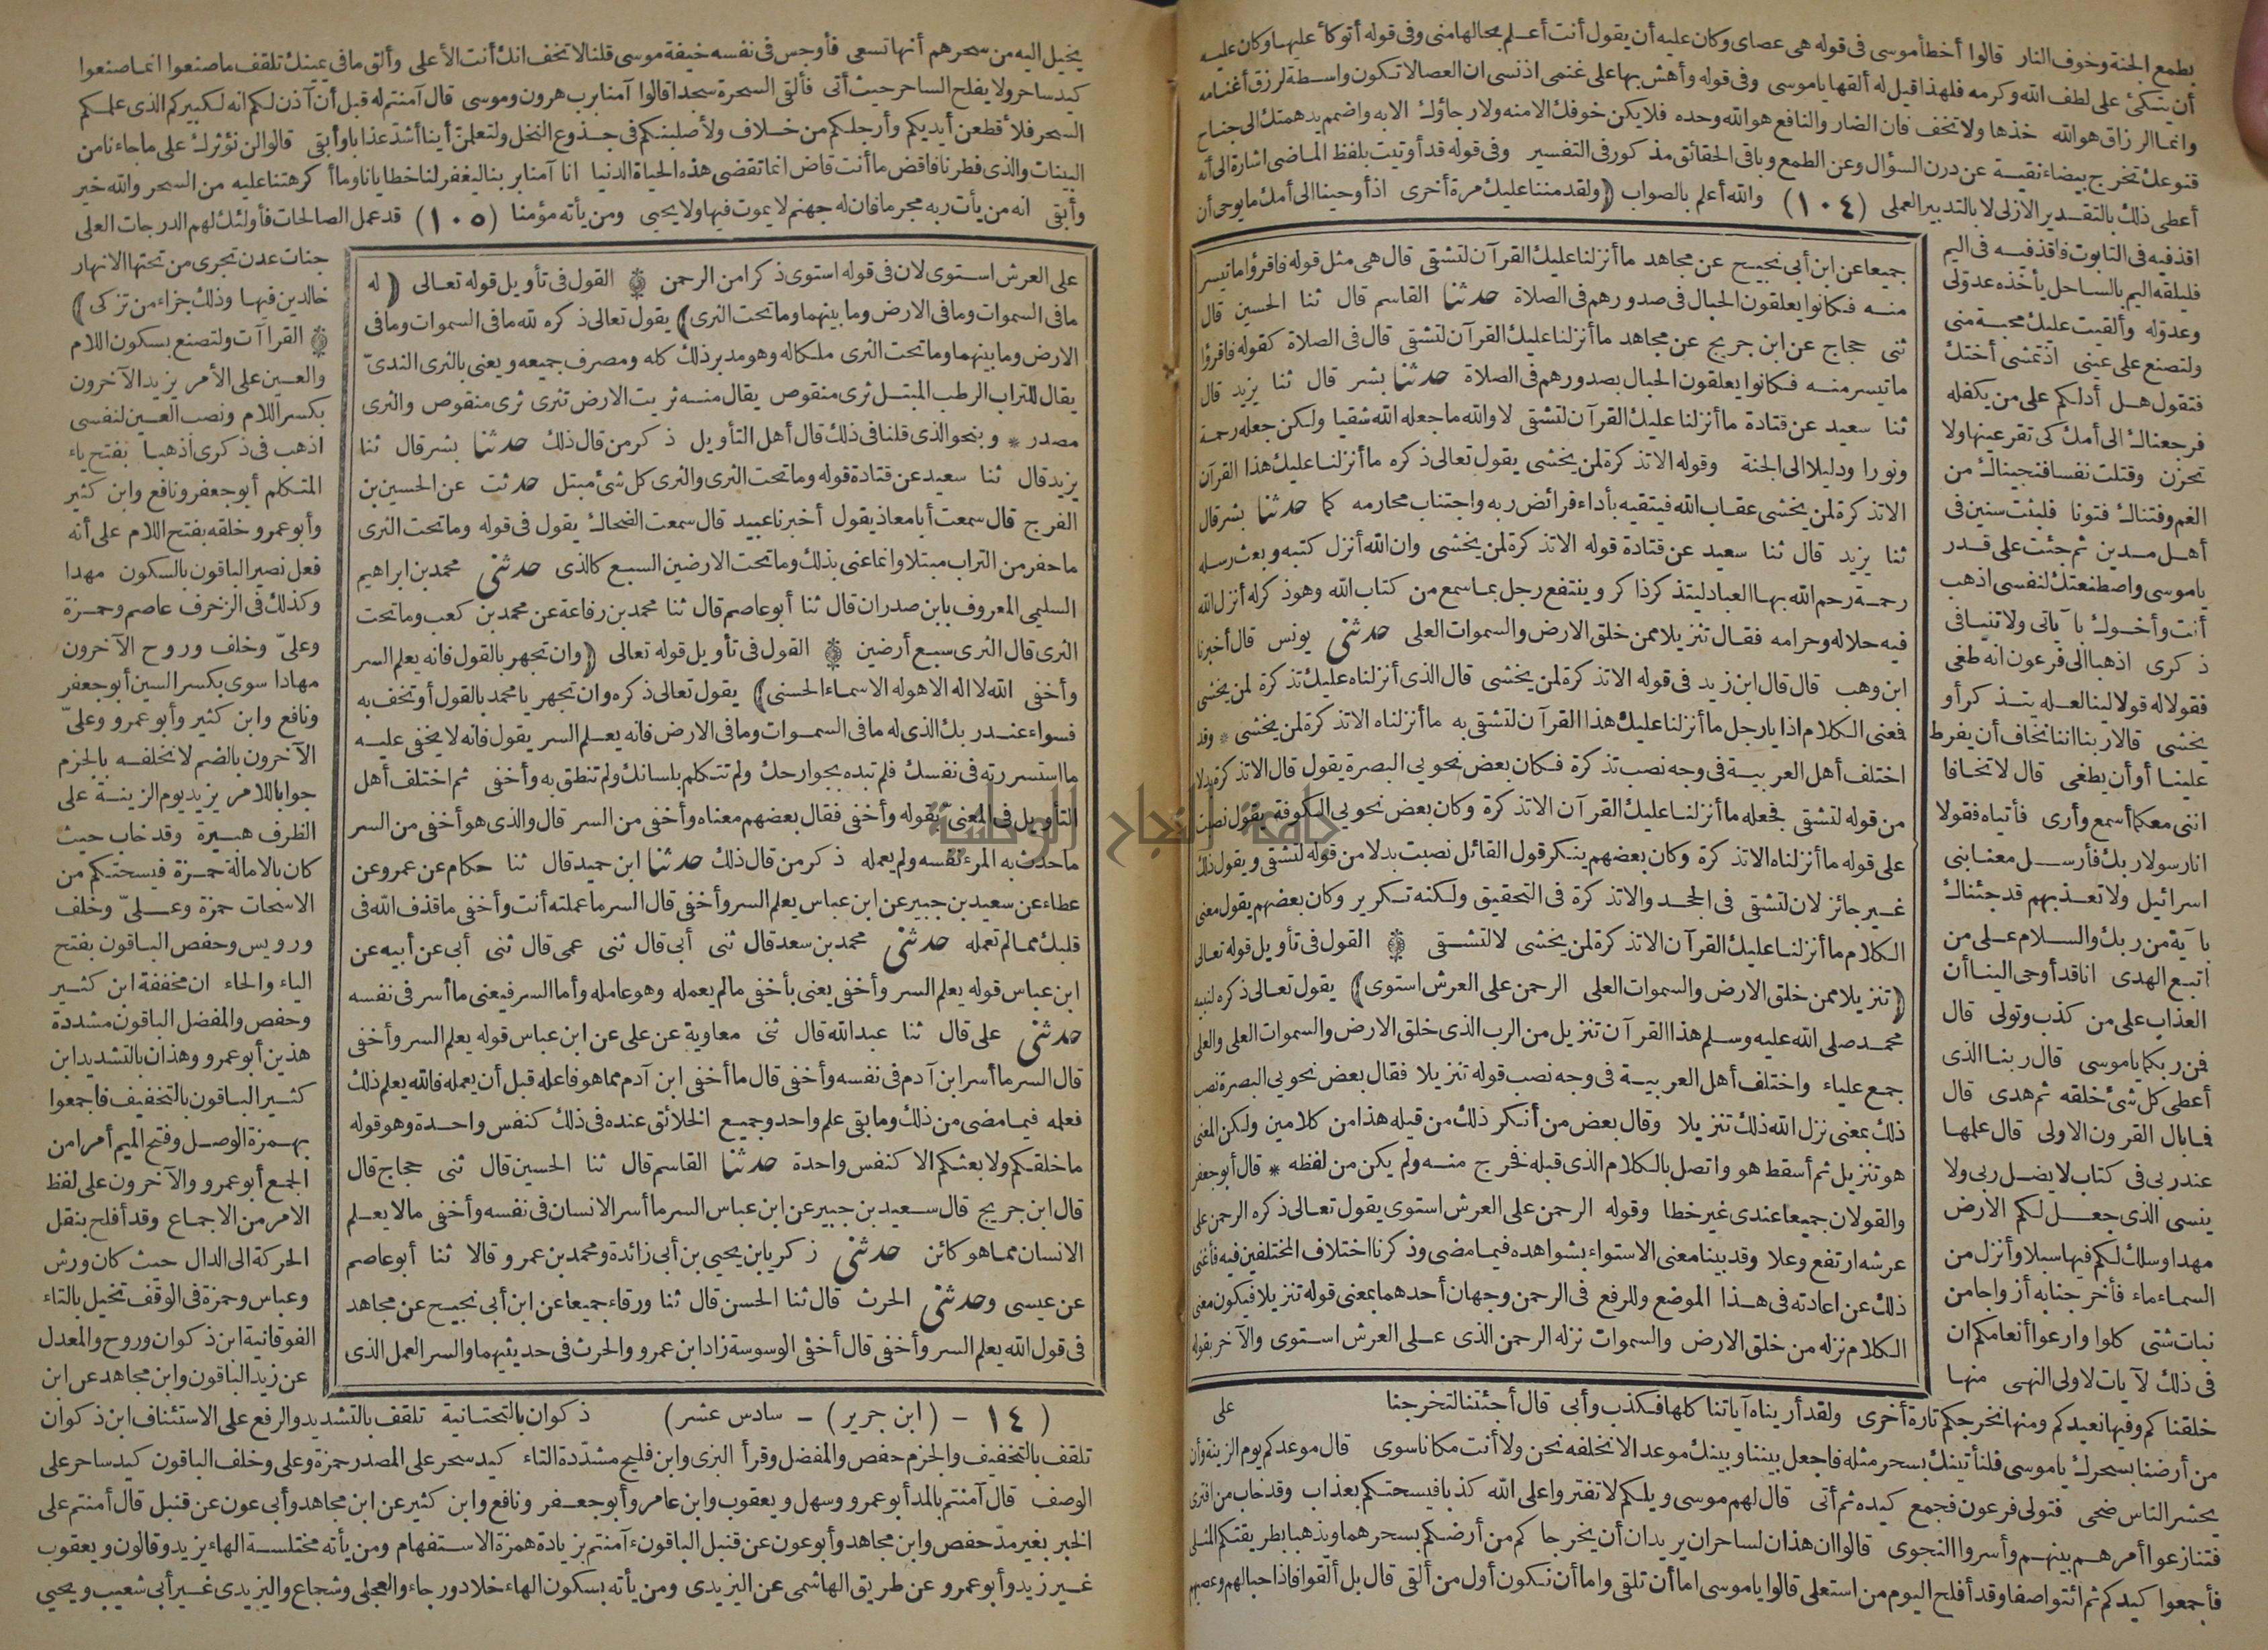 بطمع الجنة وخوف النار قالوا أخطأ موسى فى قوله هى عصاى وكان عليه أن يقول أنت أعلم بحالها منى وفى قوله أتوكأ عليها وكان عليه
أن يتكئ على لطف الله وكرمه فلهذا قيل له ألقها ياموسى وفى قوله وأهش بها على غنمى اذ نسى ان العصا لا تكون واسطة لرزق أغنامه
وانما الرزاق هو الله خذها ولا تخف فان الضار والنافع هو الله وحده فلا يكن خوفك الا منه ولا رجاؤك الا به واضمم يد همتك الى جناح
قنوعك تخرج بيضاء نقية عن درن السؤال وعن الطمع وباقى الحقائق مذكور فى التفسير وفى قوله قد أوتيت بلفظ الماضى اشارة الى أنه
أعطى ذلك بالتقدير الازلى لا بالتدبير العملى (١٠٤) والله أعلم بالصواب (ولقد مننا عليك مرة أخرى اذ أوحينا الى أمك ما يوحى أن
اقذفيه فى التابوت فاقذفيه فى اليم
فليلقه اليم بالساحل يأخذه عدو لى
وعدو له وألقيت عليك محبة منى
ولتصنع على عينى اذ تمشى أختك
فتقول هل أدلكم على من يكفله
فرجعناك الى أمك كى تقر عينها ولا
تحزن وقتلت نفسا فنجيناك من
الغم وفتناك فتونا فلبثت سنين فى
أهل مدين ثم جئت على قدر
ياموسى واصطنعتك لنفسى اذهب
أنت وأخوك بآياتى ولا تنيا فى
ذكرى اذهبا الى فرعون انه طغى
فقولا له قولا لينا لعله يتذكر أو
يخشى قالا ربنا اننا نخاف أن يفرط
علينا أو أن يطغى قال لا تخافا
اننى معكما أسمع وأرى فأتياه فقولا
انا رسولا ربك فأرسل معنا بنى
اسرائيل ولا تعذبهم قد جئناك
بآية من ربك والسلام على من
اتبع الهدى انا قد أوحى الينا أن
العذاب على من كذب وتولى قال
فمن ربكما ياموسى قال ربنا الذى
أعطى كل شئ خلقه ثم هدى قال
فما بال القرون الاولى قال علمها
عند ربى فى كتاب لا يضل ربى ولا
ينسى الذى جعل لكم الارض
مهدا وسلك لكم فيها سبلا وأنزل من
السماء ماء فأخرجنا به أزواجا من
نبات شتى كلوا وارعوا أنعامكم ان
فى ذلك لآيات لاولى النهى منها
جميعا عن ابن أبى نجيح عن مجاهد ما أنزلنا عليك القرآن لتشقى قال هى مثل قوله فاقرؤا ما تيسر
منه فكانوا يعلقون الحبال فى صدورهم فى الصلاة حدثنا القاسم قال ثنا الحسين قال
ثنى حجاج عن ابن جريج عن مجاهد ما أنزلنا عليك القرآن لتشقى قال فى الصلاة كقوله فاقرؤا
ما تيسر منه فكانوا يعلقون الحبال بصدورهم فى الصلاة حدثنا بشر قال ثنا يزيد قال
ثنا سعيد عن قتادة ما أنزلنا عليك القرآن لتشقى لا والله ما جعله الله شقيا ولكن جعله رحمة
ونورا ودليلا الى الجنة وقوله الا تذكرة لمن يخشى يقول تعالى ذكره ما أنزلنا عليك هذا القرآن
الا تذكرة لمن يخشى عقاب الله فيتقيه بأداء فرائض ربه واجتناب محارمه كما حدثنا بشر قال
ثنا يزيد قال ثنا سعيد عن قتادة قوله الا تذكرة لمن يخشى وان الله أنزل كتبه وبعث رسله
رحمة رحم الله بها العباد ليتذكر ذاكر وينتفع رجل بما سمع من كتاب الله وهو ذكر له أنزل الله
فيه حلاله وحرامه فقال تنزيلا ممن خلق الارض والسموات العلى حدثنى يونس قال أخبرنا
ابن وهب قال قال ابن زيد فى قوله الا تذكرة لمن يخشى قال الذى أنزلناه عليك تذكرة لمن يخشى
فمعنى الكلام اذا يا رجل ما أنزلنا عليك هذا القرآن لتشقى به ما أنزلناه الا تذكرة لمن يخشى * وقد
اختلف أهل العربية فى وجه نصب تذكرة فكان بعض نحويى البصرة يقول قال الا تذكرة بدلا
من قوله لتشقى فجعله ما أنزلنا عليك القرآن الا تذكرة وكان بعض نحويى الكوفة يقول نصبت
على قوله ما أنزلناه الا تذكرة وكان بعضهم ينكر قول القائل نصبت بدلا من قوله لتشقى ويقول ذلك
غير جائز لان لتشقى فى الجحد والا تذكرة فى التحقيق ولكنه تكرير وكان بعضهم يقول معنى
الكلام ما أنزلنا عليك القرآن الا تذكرة لمن يخشى لا لتشقى ۞ القول فى تأويل قوله تعالى
(تنزيلا ممن خلق الارض والسموات العلى الرحمن على العرش استوى) يقول تعالى ذكره لنبيه
محمد صلى الله عليه وسلم هذا القرآن تنزيل من الرب الذى خلق الارض والسموات العلى والعلى
جمع علياء واختلف أهل العربية فى وجه نصب قوله تنزيلا فقال بعض نحويى البصرة نصب
ذلك بمعنى نزل الله ذلك تنزيلا وقال بعض من أنكر ذلك من قيله هذا من كلامين ولكن المعنى
هو تنزيل ثم أسقط هو واتصل بالكلام الذى قبله فخرج منه ولم يكن من لفظه * قال أبو جعفر
والقولان جميعا عندى غير خطا وقوله الرحمن على العرش استوى يقول تعالى ذكره الرحمن على
عرشه ارتفع وعلا وقد بينا معنى الاستواء بشواهده فيما مضى وذكرنا اختلاف المختلفين فيه فأغنى
ذلك عن اعادته فى هذا الموضع وللرفع فى الرحمن وجهان أحدهما بمعنى قوله تنزيلا فيكون معنى
الكلام نزله من خلق الارض والسموات نزله الرحمن الذى على العرش استوى والآخر بقوله
على
خلقناكم وفيها نعيدكم ومنها نخرجكم تارة أخرى ولقد أريناه آياتنا كلها فكذب وأبى قال أجئتنا لتخرجنا
من أرضنا بسحرك ياموسى فلنأتينك بسحر مثله فاجعل بيننا وبينك موعدا لا نخلفه نحن ولا أنت مكانا سوى قال موعدكم يوم الزينة وأن
يحشر الناس ضحى فتولى فرعون فجمع كيده ثم أتى قال لهم موسى ويلكم لا تفتروا على الله كذبا فيسحتكم بعذاب وقد خاب من افترى
فتنازعوا أمرهم بينهم وأسروا النجوى قالوا ان هذان لساحران يريدان أن يخرجاكم من أرضكم بسحرهما ويذهبا بطريقتكم المثلى
فأجمعوا كيدكم ثم ائتوا صفا وقد أفلح اليوم من استعلى قالوا ياموسى اما أن تلقى واما أن نكون أول من ألقى قال بل ألقوا فاذا حبالهم وعصيهم
يخيل اليه من سحرهم أنها تسعى فأوجس فى نفسه خيفة موسى قلنا لا تخف انك أنت الأعلى وألق ما فى يمينك تلقف ما صنعوا انما صنعوا
كيد ساحر ولا يفلح الساحر حيث أتى فألقى السحرة سجدا قالوا آمنا برب هرون وموسى قال آمنتم له قبل أن آذن لكم انه لكبيركم الذى علمكم
السحر فلأقطعن أيديكم وأرجلكم من خلاف ولأصلبنكم فى جذوع النخل ولتعلمن أينا أشد عذابا وأبقى قالوا لن نؤثرك على ما جاءنا من
البينات والذى فطرنا فاقض ما أنت قاض انما تقضى هذه الحياة الدنيا انا آمنا بربنا ليغفر لنا خطايانا وما أكرهتنا عليه من السحر والله خير
وأبقى انه من يأت ربه مجرما فان له جهنم لا يموت فيها ولا يحيى ومن يأته مؤمنا (١٠٥) قد عمل الصالحات فأولئك لهم الدرجات العلى
على العرش استوى لان فى قوله استوى ذكرا من الرحمن ۞ القول فى تأويل قوله تعالى (له
ما فى السموات وما فى الارض وما بينهما وما تحت الثرى) يقول تعالى ذكره لله ما فى السموات وما فى
الارض وما بينهما وما تحت الثرى ملكا له وهو مدبر ذلك كله ومصرف جميعه ويعنى بالثرى الندىّ
يقال للتراب الرطب المبتل ثرى منقوص يقال منه ثريت الارض تثرى ثرى منقوص والثرى
مصدر * وبنحو الذى قلنا فى ذلك قال أهل التأويل ذكر من قال ذلك حدثنا بشر قال ثنا
يزيد قال ثنا سعيد عن قتادة قوله وما تحت الثرى والثرى كل شئ مبتل حدثت عن الحسين بن
الفرج قال سمعت أبا معاذ يقول أخبرنا عبيد قال سمعت الضحاك يقول فى قوله وما تحت الثرى
ما حفر من التراب مبتلا وانما عنى بذلك وما تحت الارضين السبع كالذى حدثنى محمد بن ابراهيم
السليمى المعروف بابن صدران قال ثنا أبو عاصم قال ثنا محمد بن رفاعة عن محمد بن كعب وما تحت
الثرى قال الثرى سبع أرضين ۞ القول فى تأويل قوله تعالى (وان تجهر بالقول فانه يعلم السر
وأخفى الله لا اله الا هو له الاسماء الحسنى) يقول تعالى ذكره وان تجهر يا محمد بالقول أو تخف به
فسواء عند ربك الذى له ما فى السموات وما فى الارض فانه يعلم السر يقول فانه لا يخفى عليه
ما استسررته فى نفسك فلم تبده بجوارحك ولم تتكلم بلسانك ولم تنطق به وأخفى ثم اختلف أهل
التأويل فى المعنىّ بقوله وأخفى فقال بعضهم معناه وأخفى من السر قال والذى هو أخفى من السر
ما حدث به المرء نفسه ولم يعمله ذكر من قال ذلك حدثنا ابن حميد قال ثنا حكام عن عمرو عن
عطاء عن سعيد بن جبير عن ابن عباس يعلم السر وأخفى قال السر ما عملته أنت وأخفى ما قذف الله فى
قلبك مما لم تعمله حدثنى محمد بن سعد قال ثنى أبى قال ثنى عمى قال ثنى أبى عن أبيه عن
ابن عباس قوله يعلم السر وأخفى يعنى بأخفى ما لم يعمله وهو عامله وأما السر فيعنى ما أسر فى نفسه
حدثنى على قال ثنا عبد الله قال ثنى معاوية عن على عن ابن عباس قوله يعلم السر وأخفى
قال السر ما أسر ابن آدم فى نفسه وأخفى قال ما أخفى ابن آدم مما هو فاعله قبل أن يعمله فالله يعلم ذلك
فعلمه فيما مضى من ذلك وما بقى علم واحد وجميع الخلائق عنده فى ذلك كنفس واحدة وهو قوله
ما خلقكم ولا بعثكم الا كنفس واحدة حدثنا القاسم قال ثنا الحسين قال ثنى حجاج قال
قال ابن جريج قال سعيد بن جبير عن ابن عباس السر ما أسر الانسان فى نفسه وأخفى ما لا يعلم
الانسان مما هو كائن حدثنى زكريا بن يحيى بن أبى زائدة ومحمد بن عمرو قالا ثنا أبو عاصم
عن عيسى وحدثنى الحرث قال ثنا الحسن قال ثنا ورقاء جميعا عن ابن أبى نجيح عن مجاهد
فى قول الله يعلم السر وأخفى قال أخفى الوسوسة زاد ابن عمرو والحرث فى حديثيهما والسر العمل الذى
جنات عدن تجرى من تحتها الانهار
خالدين فيها وذلك جزاء من تزكى)
۞ القراآت ولتصنع بسكون اللام
والعين على الأمر يزيد الآخرون
بكسر اللام ونصب العين لنفسى
اذهب فى ذكرى اذهبا بفتح ياء
المتكلم أبو جعفر ونافع وابن كثير
وأبو عمرو خلقه بفتح اللام على أنه
فعل نصير الباقون بالسكون مهدا
وكذلك فى الزخرف عاصم وحمزة
وعلىّ وخلف وروح الآخرون
مهادا سوى بكسر السين أبو جعفر
ونافع وابن كثير وأبو عمرو وعلىّ
الآخرون بالضم لا نخلفه بالجزم
جوابا للامر يزيد يوم الزينة على
الظرف هبيرة وقد خاب حيث
كان بالامالة حمزة فيسحتكم من
الاسحات حمزة وعلىّ وخلف
ورويس وحفص الباقون بفتح
الياء والحاء ان مخففة ابن كثير
وحفص والمفضل الباقون مشددة
هذين أبو عمرو وهذان بالتشديد ابن
كثير الباقون بالتخفيف فاجمعوا
بهمزة الوصل وفتح الميم أمرا من
الجمع أبو عمرو والآخرون على لفظ
الامر من الاجماع وقد أفلح بنقل
الحركة الى الدال حيث كان ورش
وعباس وحمزة فى الوقف تخيل بالتاء
الفوقانية ابن ذكوان وروح والمعدل
عن زيد الباقون وابن مجاهد عن ابن
(١٤ - (ابن جرير) - سادس عشر) ذكوان بالتحتانية تلقف بالتشديد والرفع على الاستئناف ابن ذكوان
تلقف بالتخفيف والجزم حفص والمفضل وقرأ البزى وابن فليح مشددة التاء كيد سحر على المصدر حمزة وعلى وخلف الباقون كيد ساحر على
الوصف قال آمنتم بالمد أبو عمرو وسهل ويعقوب وابن عامر وأبو جعفر ونافع وابن كثير عن ابن مجاهد وأبى عون عن قنبل قال أمنتم على
الخبر بغير مدّ حفص وابن مجاهد وأبو عون عن قنبل الباقون ءآمنتم بزيادة همزة الاستفهام ومن يأته مختلسة الهاء يزيد وقالون ويعقوب
غير زيد وأبو عمرو عن طريق الهاشمى عن اليزيدى ومن يأته بسكون الهاء خلاد ورجاء والعجلى وشجاع واليزيدى غير أبى شعيب ويحيى
جامعة النجاح الوطنية